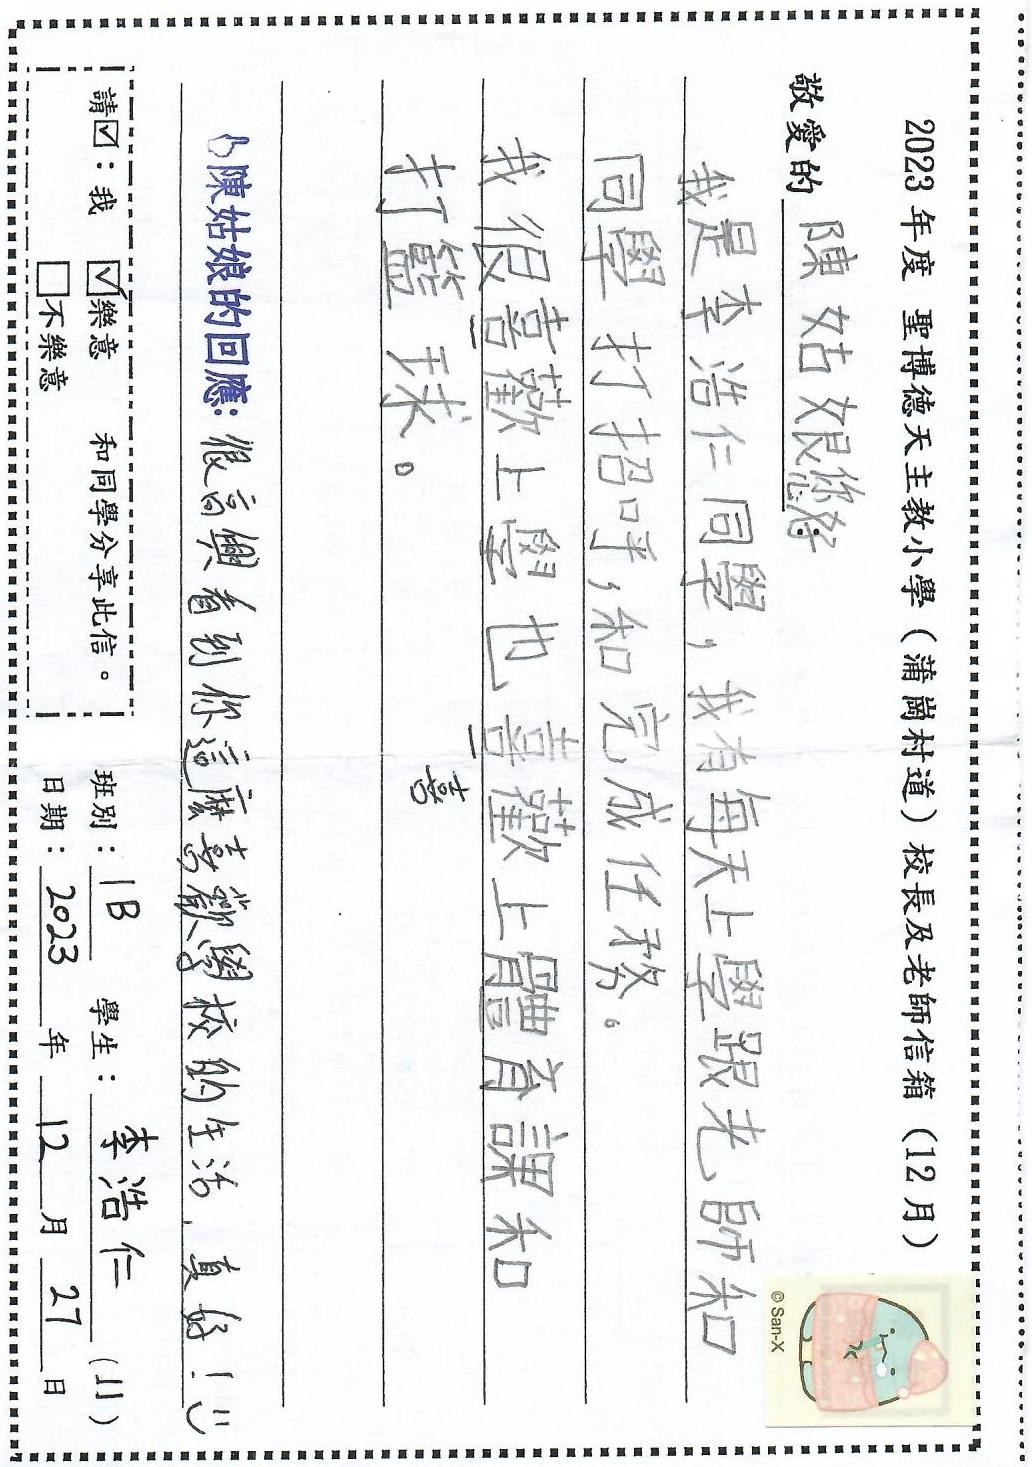 2023 年度 聖博德天主教小學（蒲崗村道）校長及老師信箱（12月）
敬愛的 陳姑娘您好
我是李浩仁同學，我有每天上學跟老師和
同學打招呼，和完成任務。
我很喜歡上學也喜歡上體育課和
喜
打籃球。
陳姑娘的回應：很高興看到你這麼喜歡學校的生活，真好！
請☑：我 ☑樂意 和同學分享此信。
☐不樂意
班別：1B 學生：李浩仁 (11)
日期：2023 年 12 月 27 日
© San-X